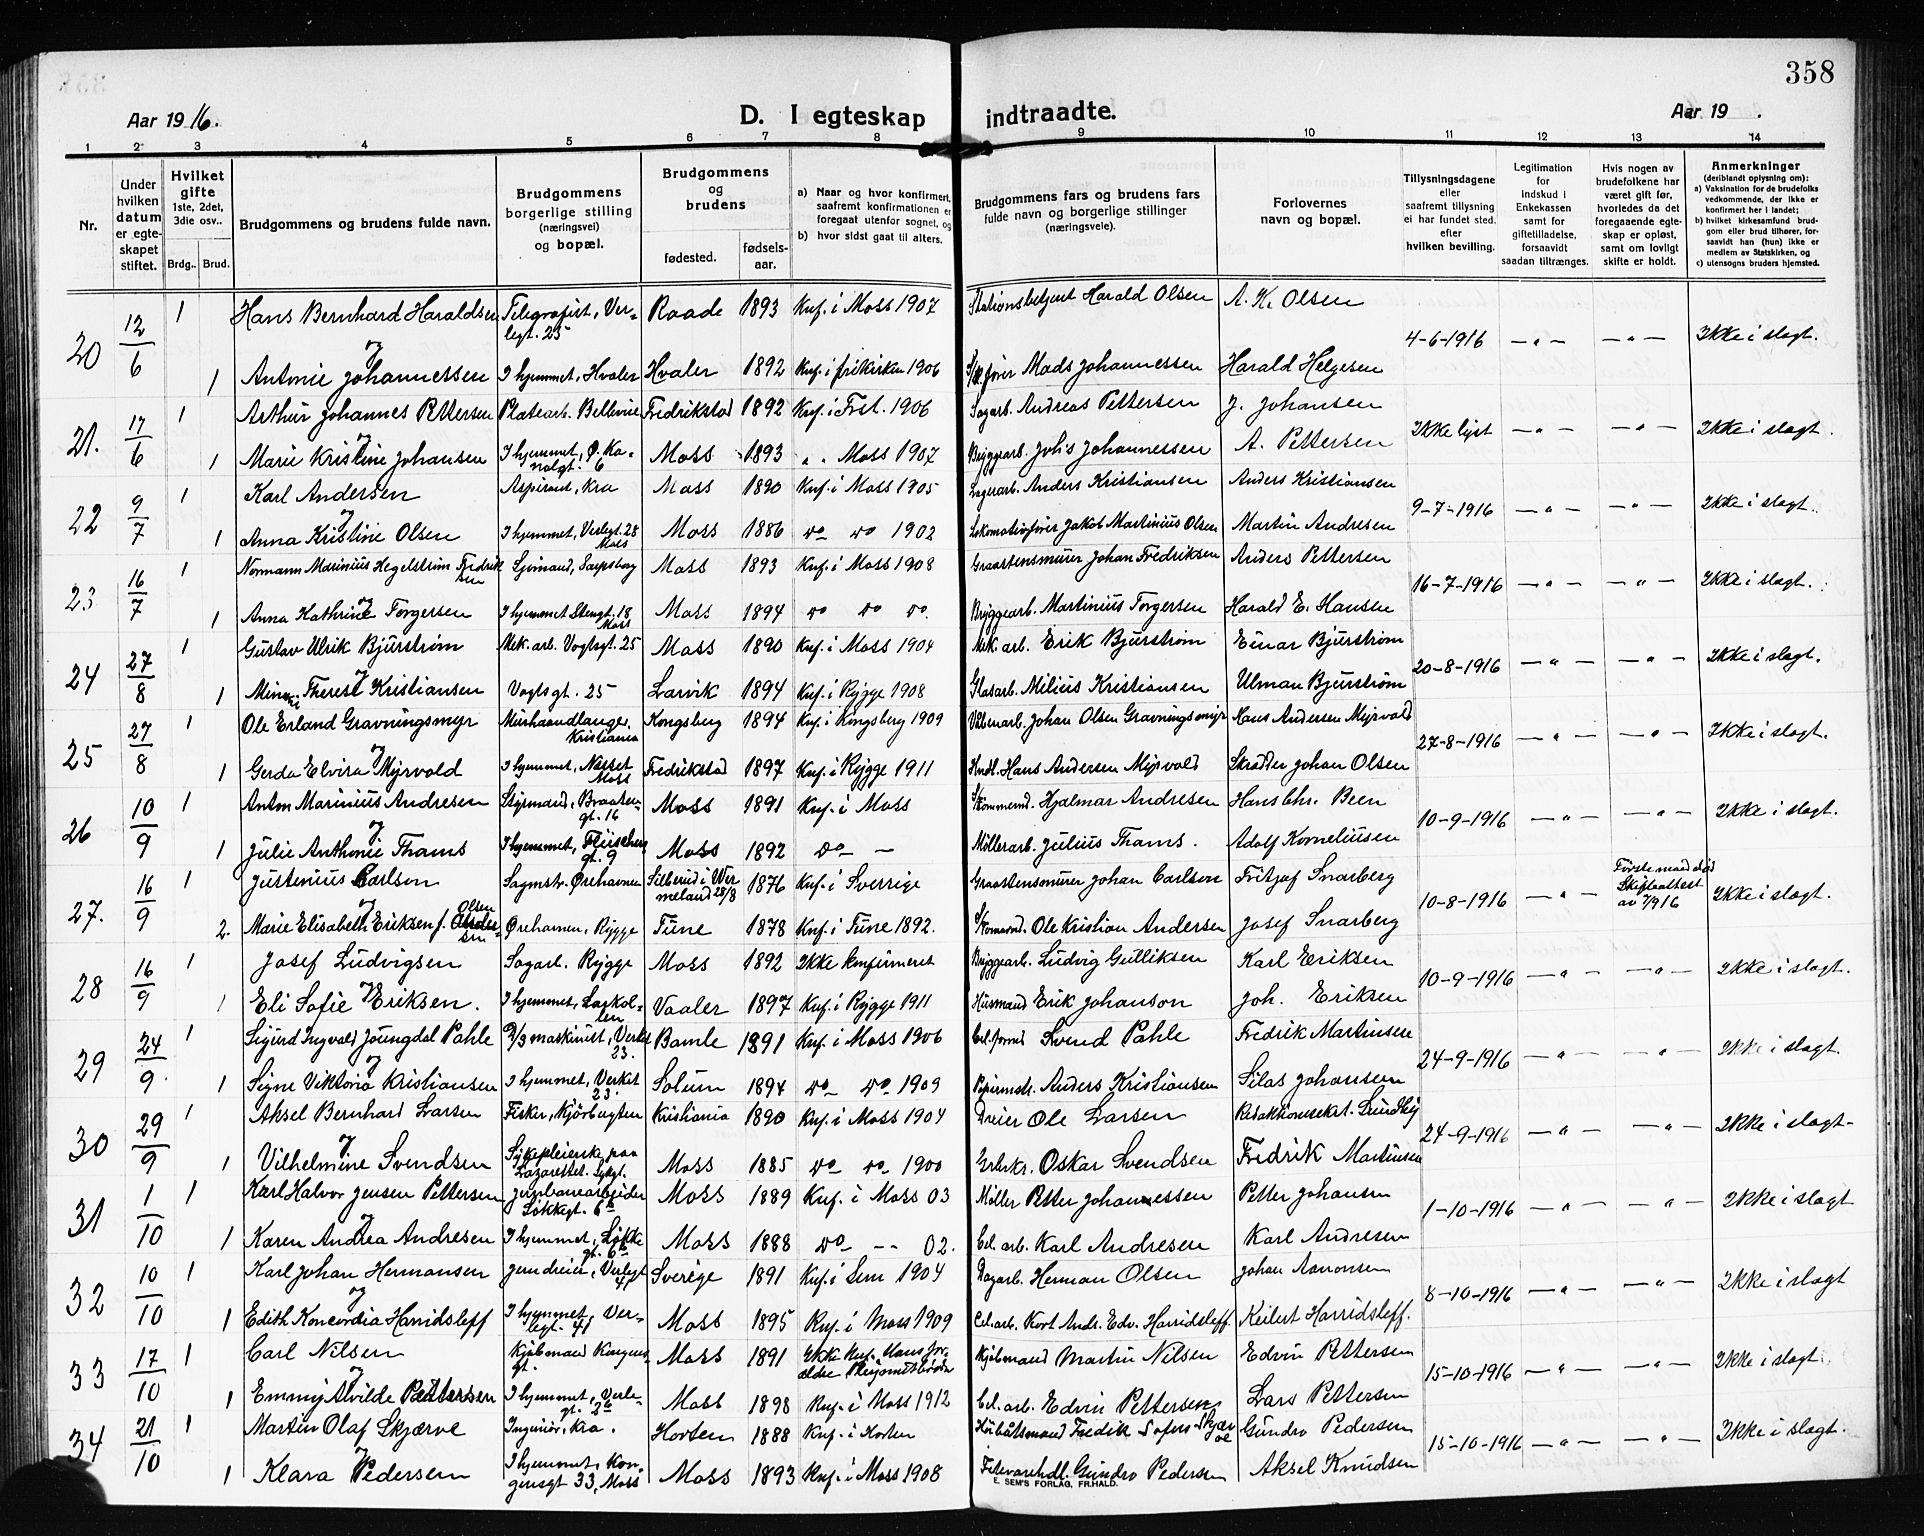 358
Aar 1916.
D. I egteskap indtraadte.
Aar 19 .
1 2 3 4 5 6 7 8 9 10 11 12 13 14
Nr.
Under hvilken datum er egteskapet stiftet.
Hvilket gifte 1ste, 2det, 3die osv..
Brdg.. Brud.
Brudgommens og brudens fulde navn.
Brudgommens borgerlige stilling (næringsvei) og bopæl.
Brudgommens og brudens
fødested.
fødsels-aar.
a) Naar og hvor konfirmert, saafremt konfirmationen er foregaat utenfor sognet, og
b) hvor sidst gaat til alters.
Brudgommens fars og brudens fars fulde navn og borgerlige stillinger (næringsveie).
Forlovernes navn og bopæl.
Tillysningsdagene eller saafremt tillysning ei har fundet sted. efter hvilken bevilling.
Legitimation for indskud i Enkekassen samt for giftetilladelse, forsaavidt saadan tiltrænges.
Hvis nogen av brudefolkene har været gift før, hvorledes da det foregaaende egteskap er opløst, samt om lovligt skifte er holdt.
Anmerkninger (deriblandt oplysning om):
a) Vaksination for de brudefolks vedkommende, der ikke er konfirmert her i landet;
b) hvilket kirkesamfund brudgom eller brud tilhører, forsaavidt han (hun) ikke er medlem av Statskirken, og
c) utensogns bruders hjemsted.
20 12/6 1 Hans Bernhard Haraldsen Telegrafist, Verlegt. 25 Raade 1893 Knf. i Moss 1907 Stationsbetjent Harald Olsen A. K. Olsen 4-6-1916 -"- -"- Ikke i slægt.
og
1 Antonie Johannessen I hjemmet, Hvaler Hvaler 1892 Knf. i frikirken 1906 Mads Johannessen Harald Helgesen
21. 17/6 1 Arthur Johannes Pettersen Platearb. Bellevue Fredrikstad 1892 Knf. i Frst. 1906 Sagarb. Andreas Pettersen J. Johansen Ikke lyst -"- -"- Ikke i slægt.
og
1 Marie Kristine Johansen I hjemmet, Ø. Kanalgt. 6 Moss 1893 " " Moss 1907 Bryggearb. Johs Johannessen A. Pettersen
22 9/7 1 Karl Andersen Aspirant, Kra Moss 1890 Knf. i Moss 1905 Lagerarb. Anders Kristiansen Anders Kristiansen 9-7-1916 -"- -"- Ikke i slægt.
og
1 Anna Kristine Olsen I hjemmet, Verlegt. 28 Moss Moss 1886 do do 1902 Lokomotivfører Jakob Martinius Olsen Martin Andresen
23 16/7 1 Normann Marinius Hegelstrøm Fredriksen Sjömand, Sarpsborg Moss 1893 Knf. i Moss 1908 Graastensmurer Johan Fredriksen Anders Pettersen 16-7-1916 -"- -"- Ikke i slægt.
og
1 Anna Kathrine Torgersen I hjemmet Stengt. 18 Moss Moss 1894 do do do. Bryggearb. Martinius Torgersen Harald E. Hansen
24 27/8 1 Gustav Ulrik Bjurstrøm Mek. arb. Vogtsgt. 25 Moss 1890 Knf. i Moss 1904 Mek. arb. Erik Bjurstrøm Einar Bjurstrøm 20-8-1916 -"- -"- Ikke i slægt.
og
1 Minni Therese Kristiansen Vogtsgt. 25 Larvik 1894 Knf. i Rygge 1908 Glasarb. Milius Kristiansen Ulman Bjurstrøm
25 27/8 1 Ole Erland Gravningsmyr Murhaandlanger, Kristiania Kongsberg 1894 Knf. i Kongsberg 1909 Vaabenarb. Johan Olsen Gravningsmyr Hans Andersen Myrvold 27-8-1916 -"- -"- Ikke i slægt.
og
1 Gerda Elvira Myrvold I hjemmet, Næsset Moss Fredrikstad 1897 Knf. i Rygge 1911 Hndl. Hans Andersen Myrvold Skrædder Johan Olsen
26 10/9 1 Anton Marinius Andresen Styrmand, Braatengt. 16 Moss 1891 Knf. i Moss Tømmermd. Hjalmar Andresen Hans Chr. Been 10-9-1916 -"- -"- Ikke i slægt.
og
1 Julie Anthonie Thams I hjemmet, Fleischersgt. 9 Moss 1892 do - Møllerarb. Julius Thams. Adolf Korneliussen
27. 16/9 1 Justinius Carlson Sagmstr. Ørehavnen Silberud i Wermeland 28/8 1876 Knf. i Sverrige Graastensmurer Johan Carlson Fritjof Snarberg 10-8-1916 -"- Første mand død Skifteattest av 7/9 16 Ikke i slægt.
og
2. Marie Elisabeth Eriksen f. Olsen Ørehavnen, Rygge Tune 1878 Knf. i Tune 1892. Ole Kristian Andersen Josef Snarberg
28 16/9 1 Josef Ludvigsen Sagarb. Rygge Moss 1892 Ikke konfirmeret Bryggearb. Ludvig Gulliksen Karl Eriksen 10-9-1916 -"- -"- Ikke i slægt.
og
1 Eli Sofie Eriksen. I hjemmet, Larkollen Vaaler 1897 Knf. i Rygge 1911 Husmand Erik Johanson Joh. Eriksen
29 24/9. 1 Sigurd Ingvald Joungdal Pahle D/S maskinist, Verket 23. Bamle 1891 Knf. i Moss 1906 Cel. formd Svend Pahle Fredrik Martinsen 24-9-1916 -"- -"- Ikke i slægt.
og
1 Signe Viktoria Kristiansen I hjemmet, Verket 23. Solum 1894 do do 1909 Papirmstr. Anders Kristiansen Silas Johansen
30 29/9 1 Aksel Bernhard Larsen Fisker, Kjørbugten Kristiania 1890 Knf. i Moss 1904 Dreier Ole Larsen Redaktionssekrt. Lundby 24-9-1916 -"- -"- Ikke i slægt-
og
1 Vilhelmine Svendsen Sykepleierske paa Lazarettet. Sykgt. Moss 1885 do do 1900 Oskar Svendsen Fredrik Martinsen
31 1/10 1 Karl Halvor Jensen Pettersen Jernbanearbeider Løkkegt. 6b Moss 1889 Knf. i Moss 03 Møller Petter Johannessen Petter Johansen 1-10-1916 -"- -"- Ikke i slægt
og
1 Karen Andrea Andresen I hjemmet, Løkkegt. 6b Moss 1888 do -- 02. Cel. arb. Karl Andresen Karl Andresen
32 10/10 1 Karl Johan Hermansen Jerndreier, Verlegt 41 Sverige 1891 Knf. i Sem 1904 Dagarb. Herman Olsen Johan Aanonsen 8-10-1916 -"- -"- Ikke i slægt
og
1 Edith Koncordia Harridsleff I hjemmet, Verlegt. 41 Moss 1895 Knf. i Moss 1909 Cel. arb. Kort Andr. Edv. Harridsleff Keilert Harridsleff.
33 17/10 1 Carl Nilsen Kjøbmand Kongensgt. Moss 1891 Ikke knf. Hans forældre Plesjonitsbrødre Kjøbmand Martin Nilsen Edvin Pettersen 15-10-1916 -"- -"- Ikke i slægt
og
1 Emmy Alvilde Pettersen I hjemmet, Verlegt. 26 Moss 1898 Knf. i Moss 1912 Cel. arb. Edvin Pettersen Lars Pettersen
34 21/10 1 Martin Olaf Skjærve Ingeniør, Kra. Horten 1888 Knf. i Horten Fredik Sofus Skjærve Gundro Pedersen 15-10-1916 -"- -"- Ikke i slægt.
og
1 Klara Pedersen I hjemmet, Kongensgt 33, Moss Moss 1893 Knf. i Moss 1908 Fetevarehdl. Gundro Pedersen Aksel Knudsen
E. SEM'S FORLAG, FR.HALD.